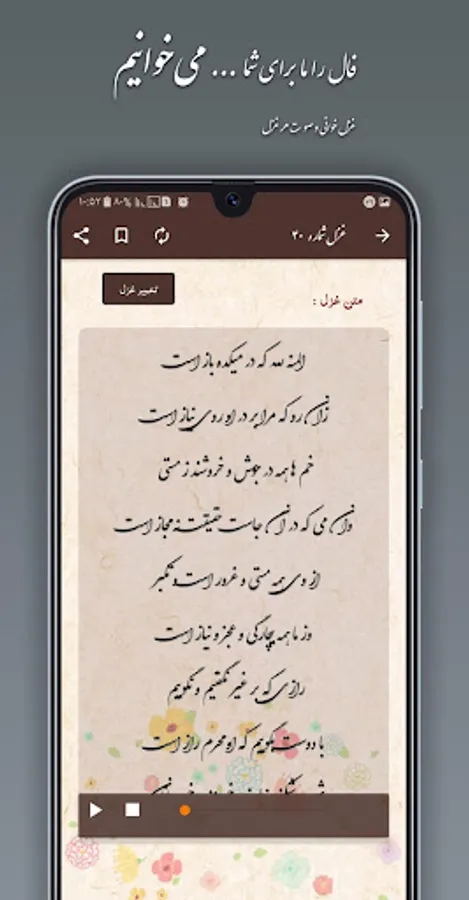 فال را ما برای شما ... می‌خوانیم
غزل خوانی و صوت هر غزل
۱۰:۵۷
۸۰%
غزل شماره ۴۰
تعبیر غزل
متن غزل :
المنة لله که در میکده باز است
زان رو که مرا بر در او روی نیاز است
خم ها همه در جوش و خروشند ز مستی
وان می که در آن جاست حقیقت نه مجاز است
از وی همه مستی و غرور است و تکبر
وز ما همه بیچارگی و عجز و نیاز است
رازی که بر غیر نگفتیم و نگوییم
با دوست بگوییم که او محرم راز است